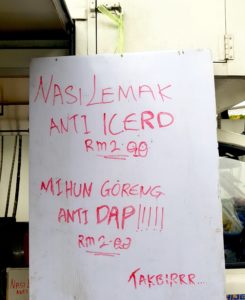 NASI LEMAK
ANTI ICERD
RM2.00
MIHUN GORENG
ANTI DAP!!!!!
RM2.00
TAKBIRRR...
NASI